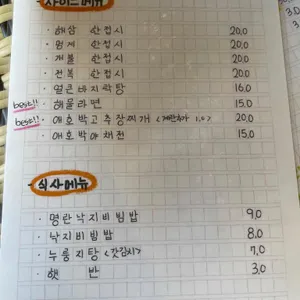 사이드메뉴
· 해삼 한접시 20.0
· 멍게 한접시 20.0
· 개불 한접시 20.0
· 전복 한접시 20.0
· 얼큰 바지락탕 16.0
best!! · 해물라면 15.0
best!! · 애호박고추장찌개 <계란추가 1.0> 20.0
· 애호박야채전 15.0
식사메뉴
· 명란낙지비빔밥 9.0
· 낙지비빔밥 8.0
· 누룽지탕 <갓김치> 7.0
· 햇 반 3.0